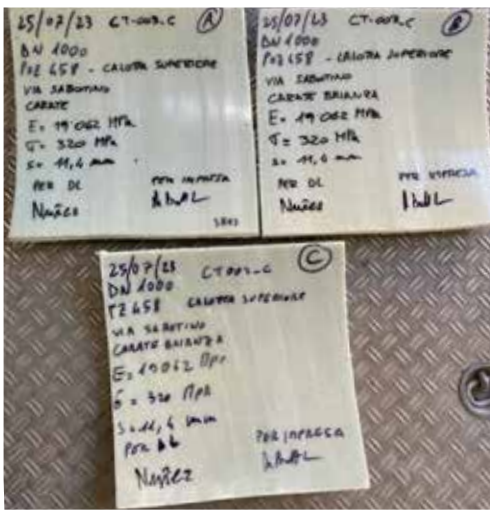 25/07/23 CT-003.C A
DN 1000
POZ 658 - CALOTTA SUPERIORE
VIA SABOTINO
CARATE
E= 19062 MPa
σ= 320 MPa
s= 11,4 mm
PER DL PER IMPRESA
Nuñez
25/07/23 CT-003.C B
DN 1000
POZ 658 - CALOTTA SUPERIORE
VIA SABOTINO
CARATE BRIANZA
E= 19062 MPa
σ= 320 MPa
s= 11,4 mm
PER DL PER IMPRESA
Nuñez
25/07/23 CT003-C C
DN 1000
PZ 658 CALOTTA SUPERIORE
VIA SABOTINO
CARATE BRIANZA
E= 19062 MPa
σ= 320 MPa
s= 11,4 mm
POR DL POR IMPRESA
Nuñez